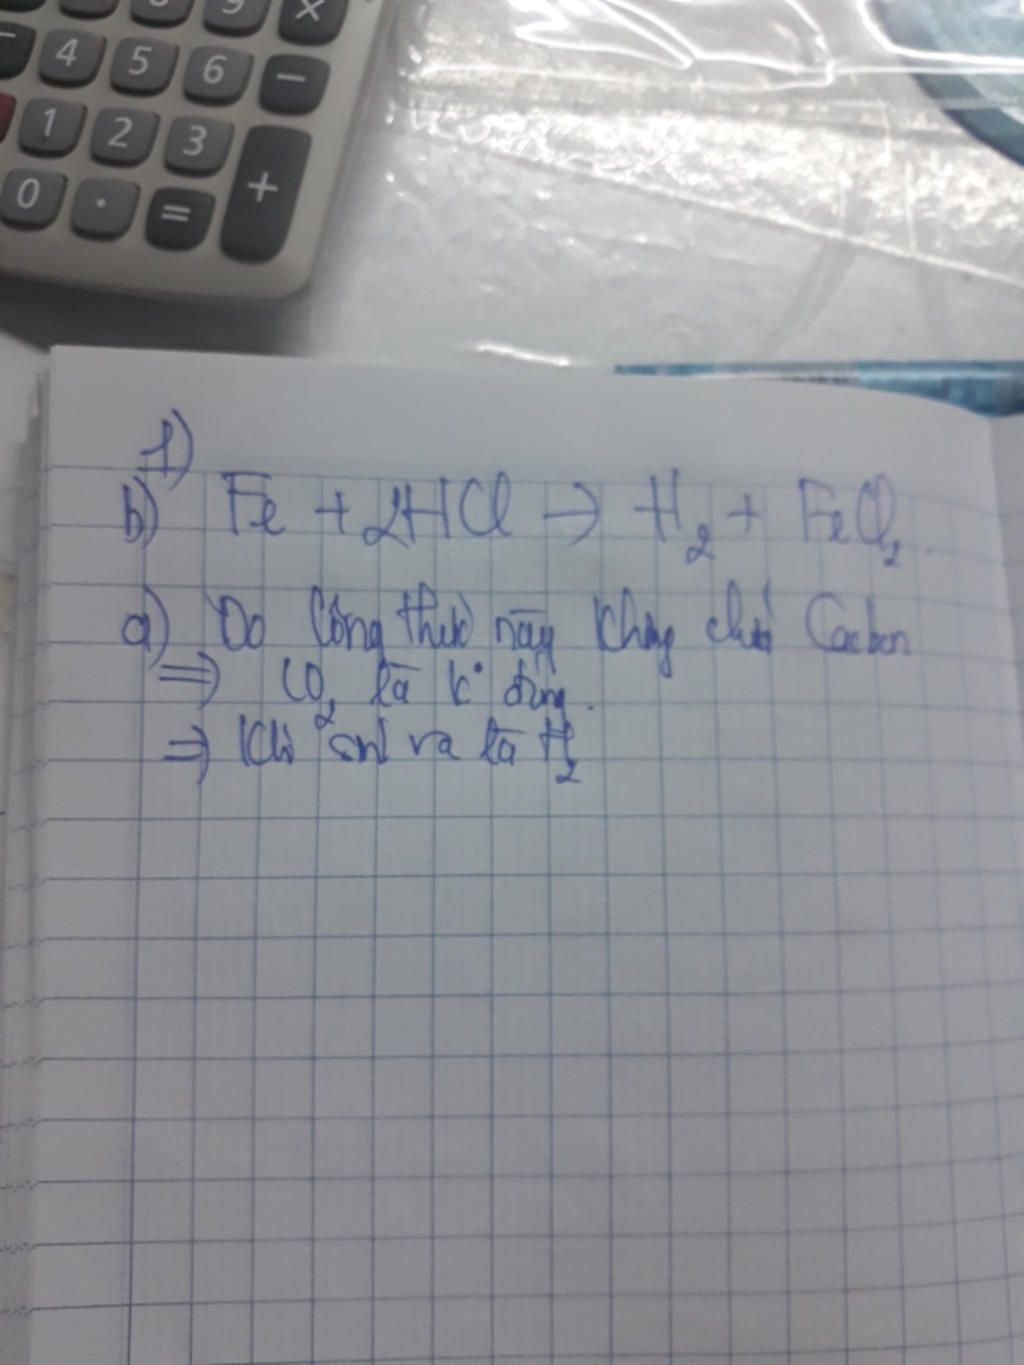 9 ×
4 5 6 −
1 2 3
0 · = +
1)
b) Fe + 2HCl → H₂ + FeCl₂
a) Do Công thức này không chứa Cacbon
⇒ CO₂ là k° đúng.
⇒ Khí sinh ra là H₂